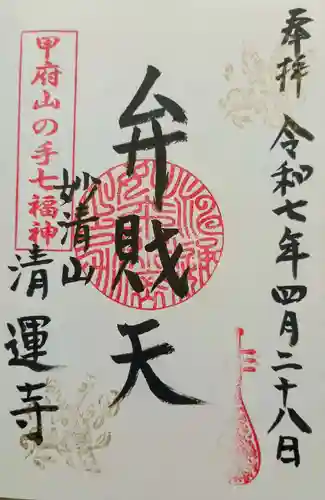 奉拝
令和七年四月二十八日
弁賎天
甲府山の手七福神
妙清山
清運寺